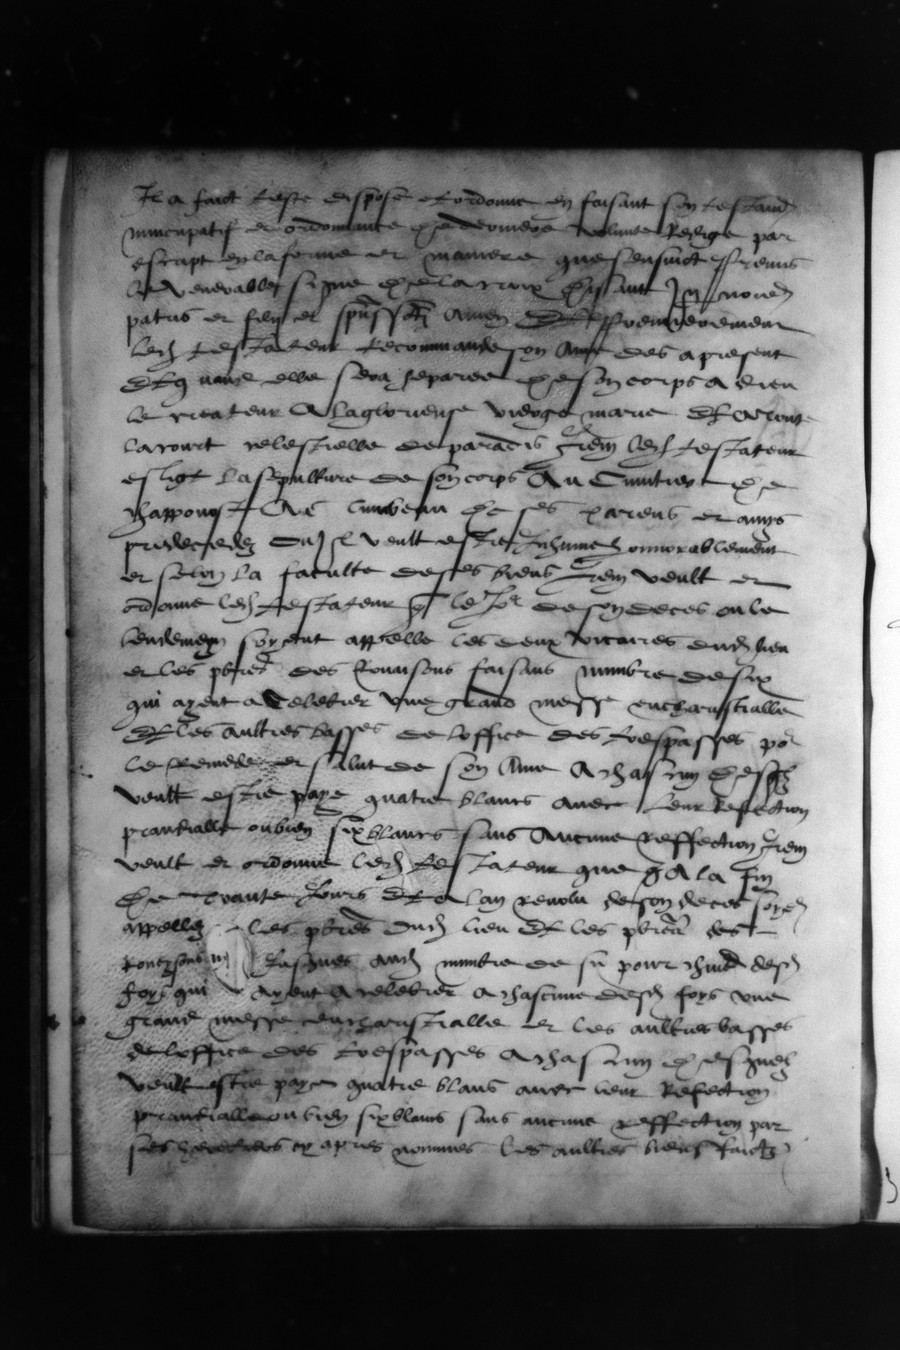 Il a faict teste dispose et ordonne en faisant son testamt
nuncupatif et ordonnance de derniere volunte Redige par
escript en la forme et maniere que sensuict Premis
le venerable signe de la croix disant In noie
patris et filii et spus scti Amen Et Premierement
led testateur Recommande son Ame des apresent
Et quand elle sera separee de son corps a dieu
le createur A la glorieuse vierge marie Et a toute
la court celestielle de paradis Item led testateur
eslict la sepulture de son corps Au Cimitiere de
chapponost Au tumbeau de ses parens et amys
predecedez Ou Il veult estre Inhume honnorablement
et selon la faculte de ses biens Item veult et
ordonne led testateur que le Jor de son deces ou le
lendemein soyent appelle les deux vicaires dud lieu
et les pbres des faisans numbre de six
qui ayent a celebrer une grand messe eucharistialle
Et les aultres basses de loffice des trespasses por
le Remede et salut de son Ame A chascun desqlz
veult estre paye quatre blancs avec leur Refection
prandialle ou bien six blancs sans aucune Reffection Item
veult et ordonne led testateur que a la fin
de trante Jours Et a lan revolu de son deces soyet
appelles les pbres dud lieu Et les pbres des
aud numbre de six pour chune desd
foys qui ayent A celebrer a chascune desd foys une
grand messe eucharistialle et les aultres basses
de loffice des trespasses A chascun desquelz
veult estre paye quatre blans avec leur Refection
prandialle ou bien six blans sans aucune reffection par
ses heretiers cy apres nommes les aultres bienffaictz